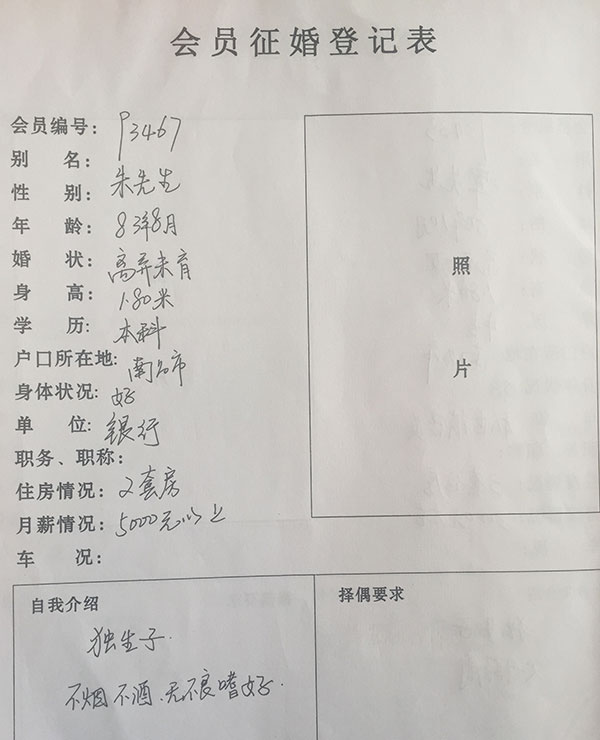 会员征婚登记表
会员编号: P3467
别 名: 朱先生
性 别:
年 龄: 83年8月
婚 状: 离异未育
身 高: 1.80米
学 历: 本科
户口所在地: 南 市
身体状况: 好
单 位: 银行
职务、职称:
住房情况: 2套房
月薪情况: 5000元以上
车 况:
照
片
自我介绍
独生子.
不烟不酒、无不良嗜好.
择偶要求